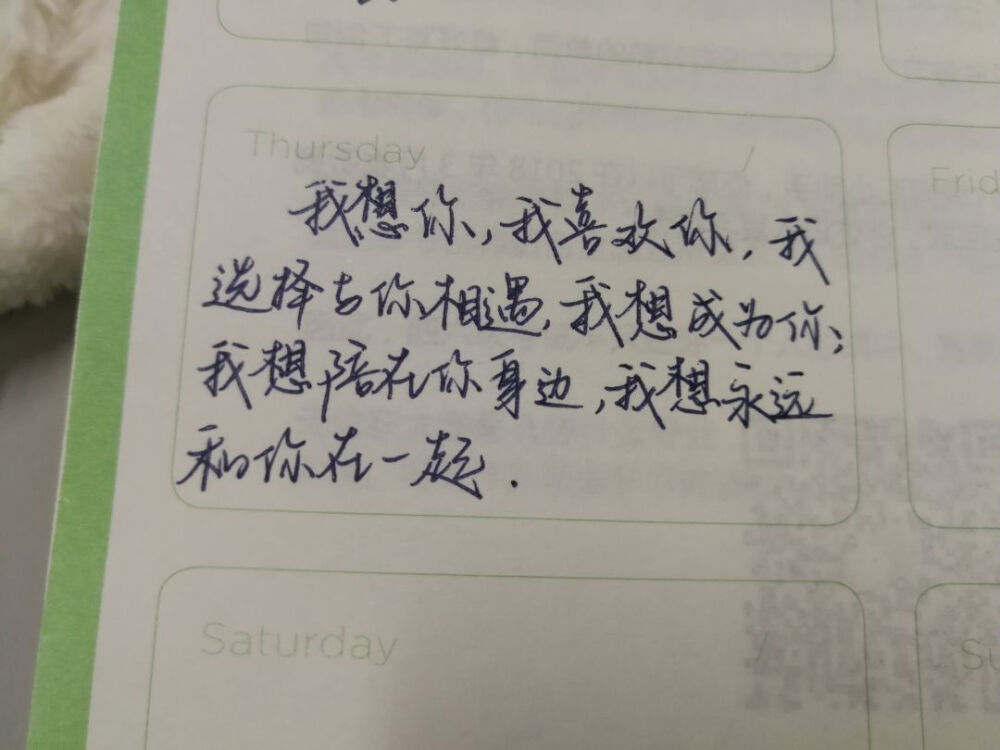 Thursday /
我想你,我喜欢你,我
选择与你相遇,我想成为你;
我想陪在你身边,我想永远
和你在一起.
Frid
Saturday /
Su